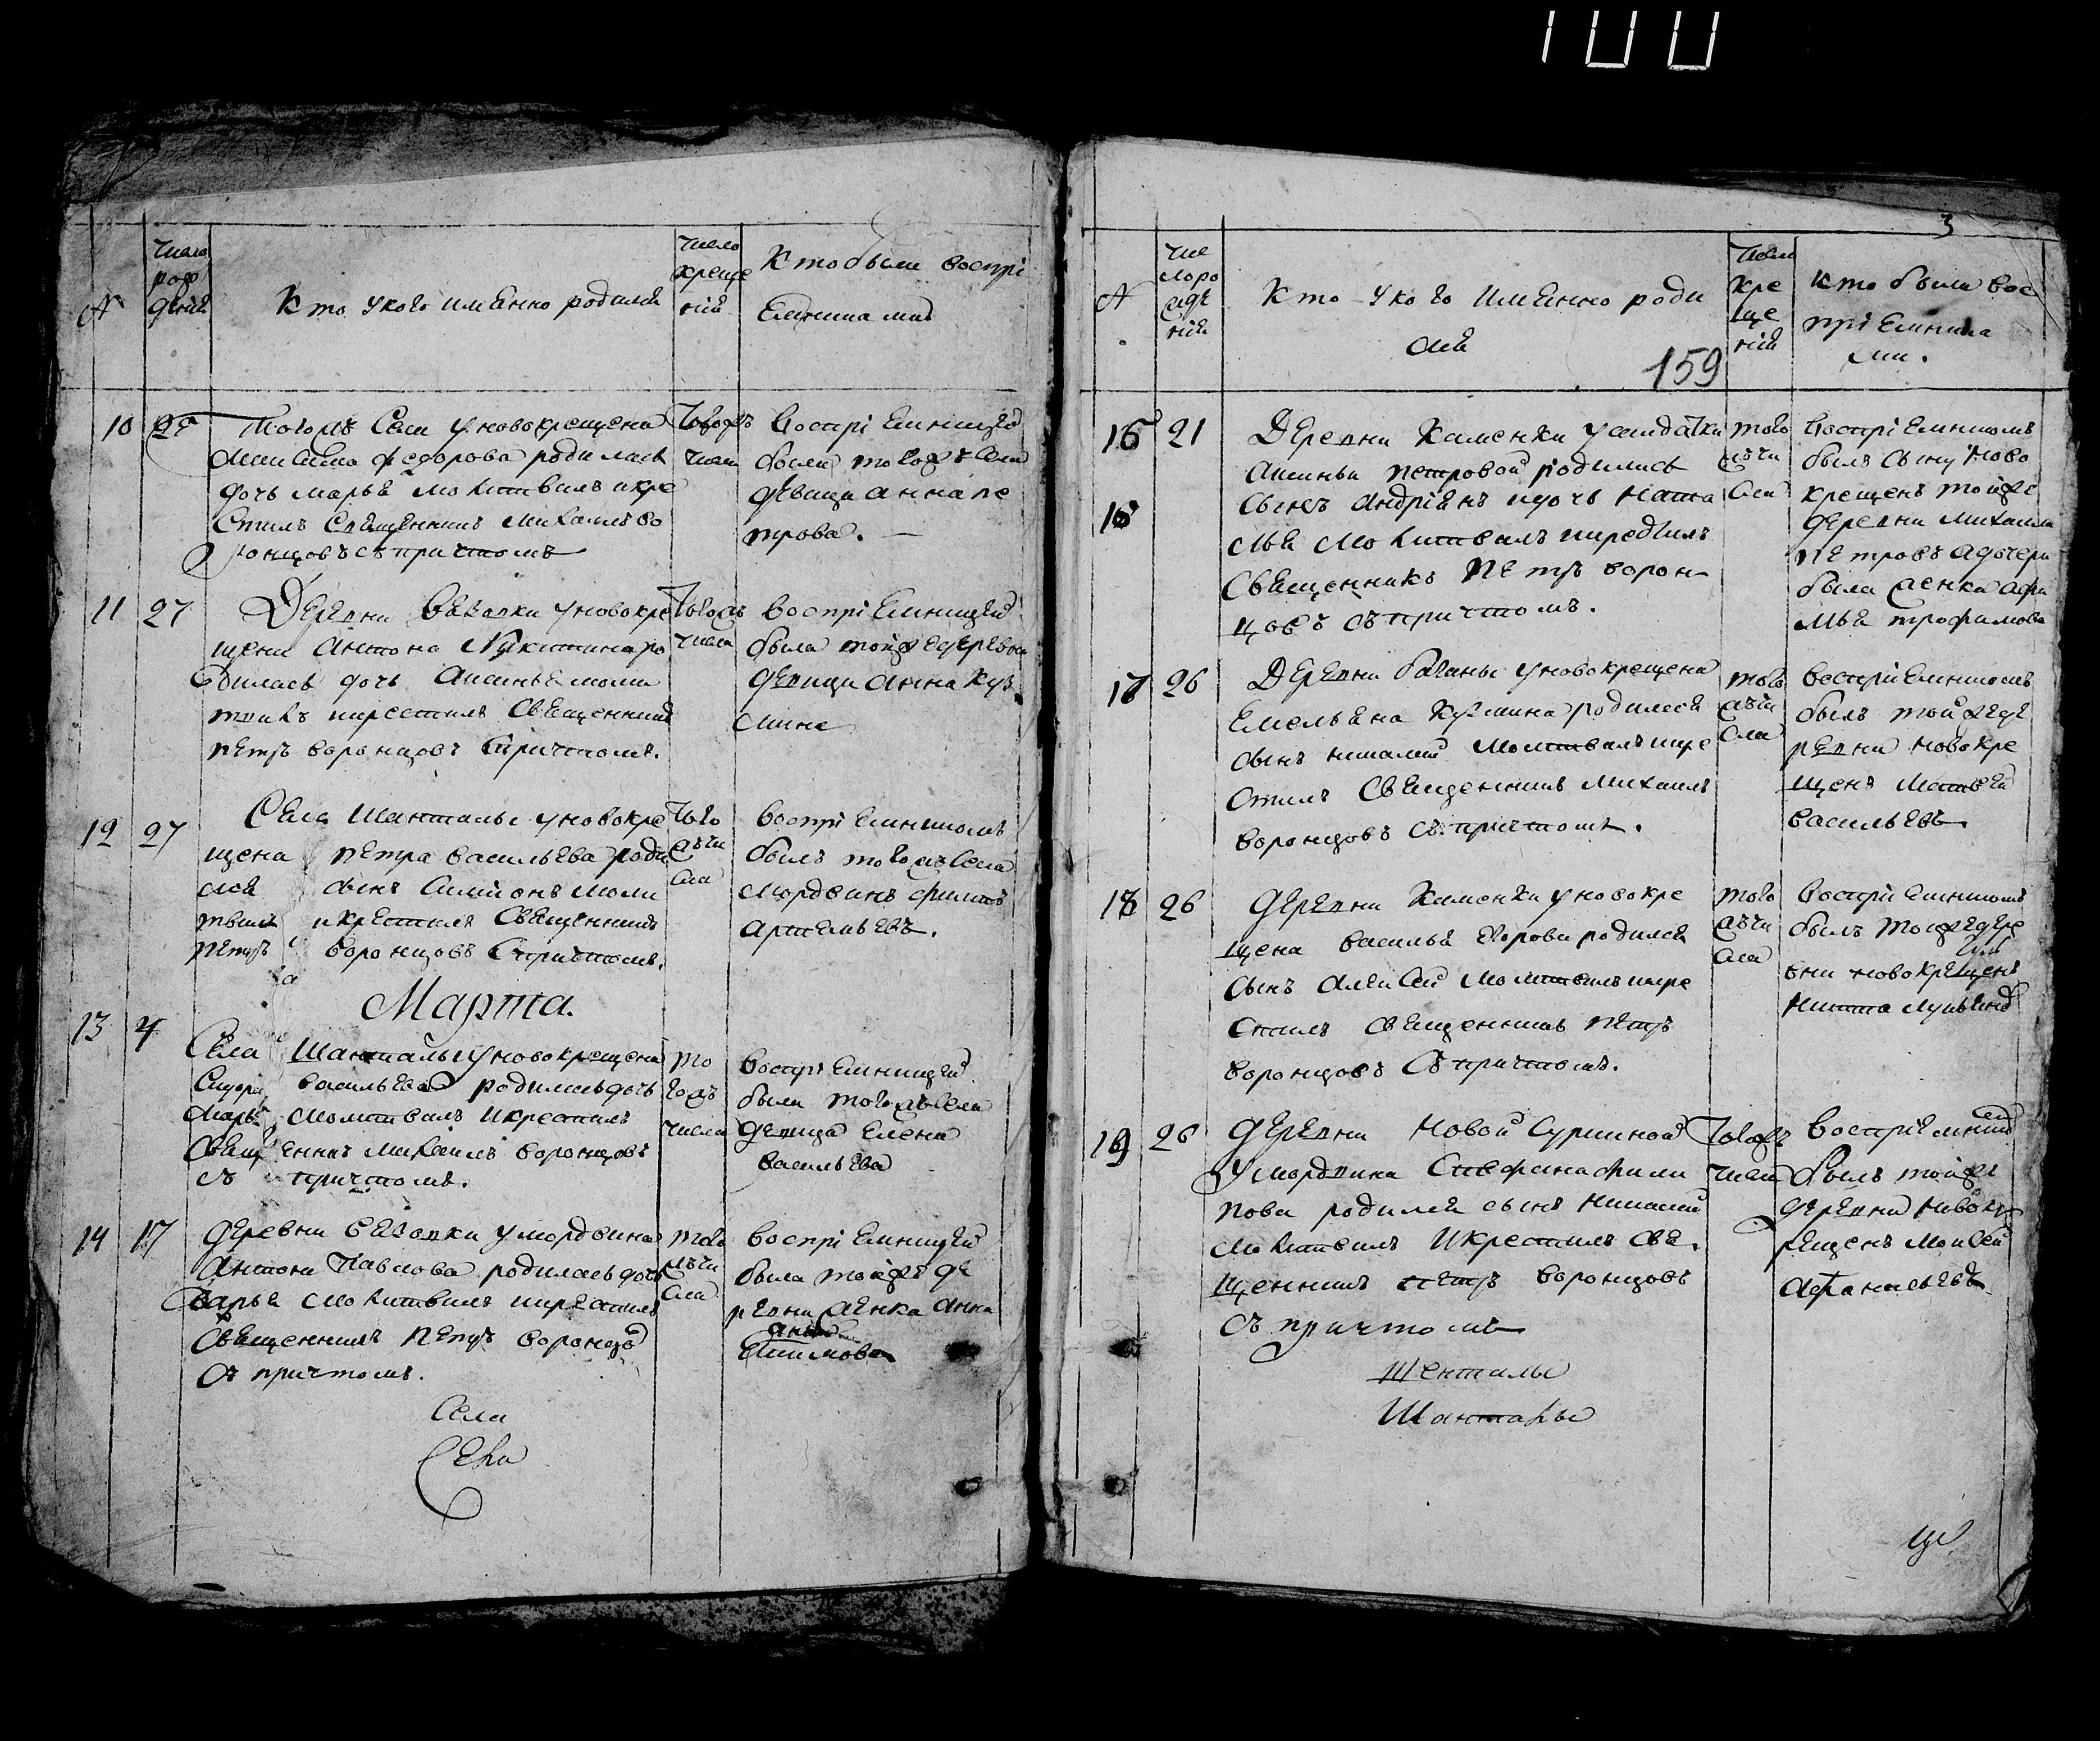 100
Число рож дения
Кто укого имянно родился
Число креще ния
Кто были воспрі
емниками
10
Тогожъ Села уновокрещена
Федорова родилась
дочь марья молитвилъ икре
Стилъ Священникъ михаилъ во
ронцовъ съпричтомъ
Тогожъ
числа
воспріемницей
была тогожъ Села
девица анна пе
трова.
11 27
Деревни уновокре
щена Антона Никитина ро
дилась дочь Аксинья моли
твилъ икрестилъ Священникъ
петръ воронцовъ Спричтомъ.
Тогожъ
числа
воспріемницей
была тойже деревни
девица анна Куз
мина
12 27
Села Шанталы уновокре
щена петра васильева роди
лся сынъ Симионъ моли
твилъ икрестилъ Священникъ
петръ воронцовъ Спричтомъ.
Того
жъчи
сла
воспріемникомъ
былъ тогожъ Села
мордвинъ филипъ
артемьевъ.
Марта.
13 4
Села Шанталы уновокрещена
васильева родилась дочь
Марья молитвилъ икрестилъ
Священникъ михаилъ воронцовъ
съ причтомъ.
то
гожъ
числа
воспріемницей
была тогожъ села
девица елена
васильева
14 17
деревни умордвина
антона павлова родилась дочь
Дарья молитвилъ икрестилъ
Священникъ петръ воронцовъ
съ причтомъ.
того
жъчи
сла
воспріемницей
была тойже де
ревни женка анна
Села
Села
3
Чи
слоро
жде
ния
Кто укого имянно роди
лся
159
Число
кре
ще
ния
кто были вос
пріемника
ми.
15 21
Деревни Каменки усолдатки
аксиньи петровой родились
16
сынъ андріянъ идочь Ната
лья молитвилъ икрестилъ
Священникъ петръ ворон
цовъ съпричтомъ.
того
жъчи
сла
воспріемникомъ
былъ сыну ново
крещенъ тойже
деревни михаила
петровъ адочери
была женка
трофимова
17 26
Деревни баганы уновокрещена
емельяна кузмина родился
сынъ николай молитвилъ икре
стилъ Священникъ михаилъ
воронцовъ съпричтомъ.
того
жъчи
сла
воспріемникомъ
былъ тойжеде
ревни новокре
щенъ матвей
васильевъ
18 26
деревни Каменки уновокре
щена василья егорова родился
сынъ алексей молитвилъ икре
стилъ священникъ петръ
воронцовъ съ причтомъ.
того
жъчи
сла
воспріемникомъ
былъ тойжедере
вни новокрещенъ
никита
19 26
деревни новой суркиной
умордвина Стефана фили
пова родился сынъ николай
молитвилъ икрестилъ свя
щенникъ петръ воронцовъ
съ причтомъ
Тогожъ
числа
воспріемникомъ
былъ тойже
деревни новокр
ещенъ моисей
афанасьевъ
Шенталы
Шанталы